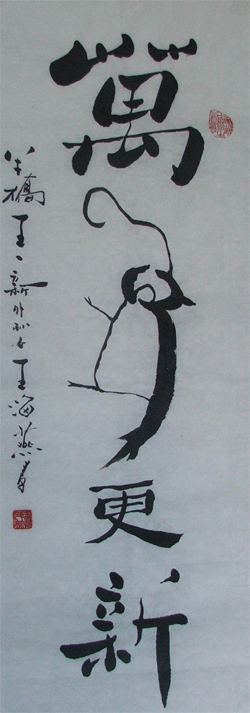 萬象更新
橋王一新外孙女王海燕書